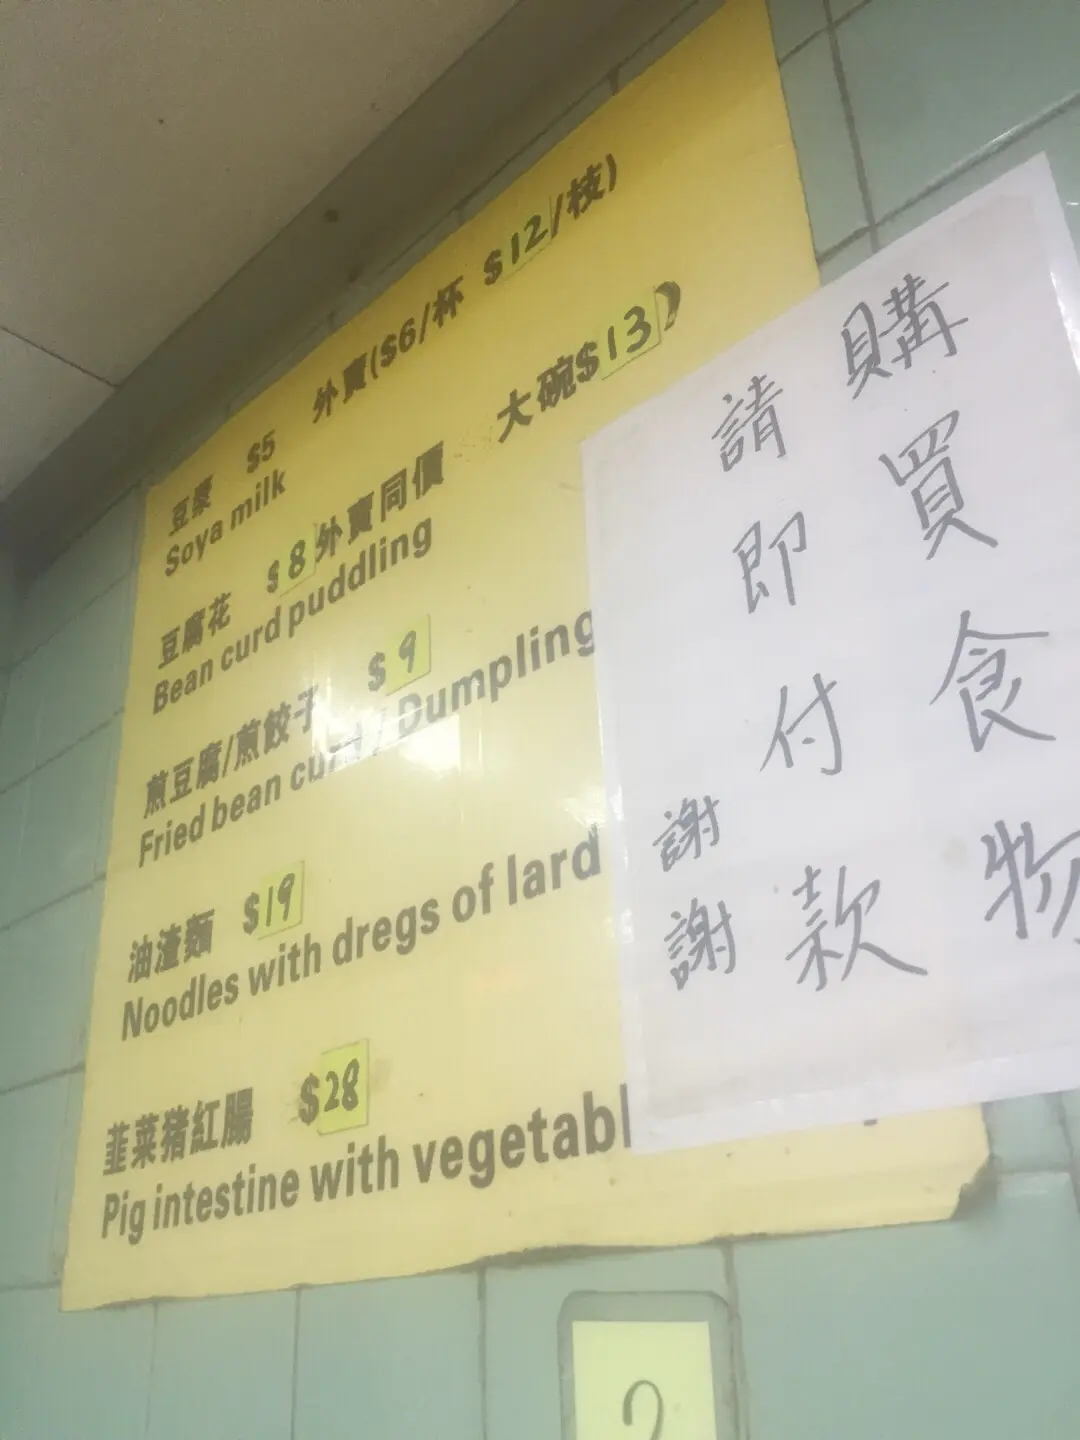 豆漿 $5 外賣($6/杯 $12/枝)
Soya milk
豆腐花 $8外賣同價 大碗$13)
Bean curd puddling
煎豆腐/煎餃子 $9
Fried bean curd / Dumpling
油渣麵 $19
Noodles with dregs of lard
韮菜猪紅腸 $28
Pig intestine with vegetabl
購買食物
請即付款
謝謝
2